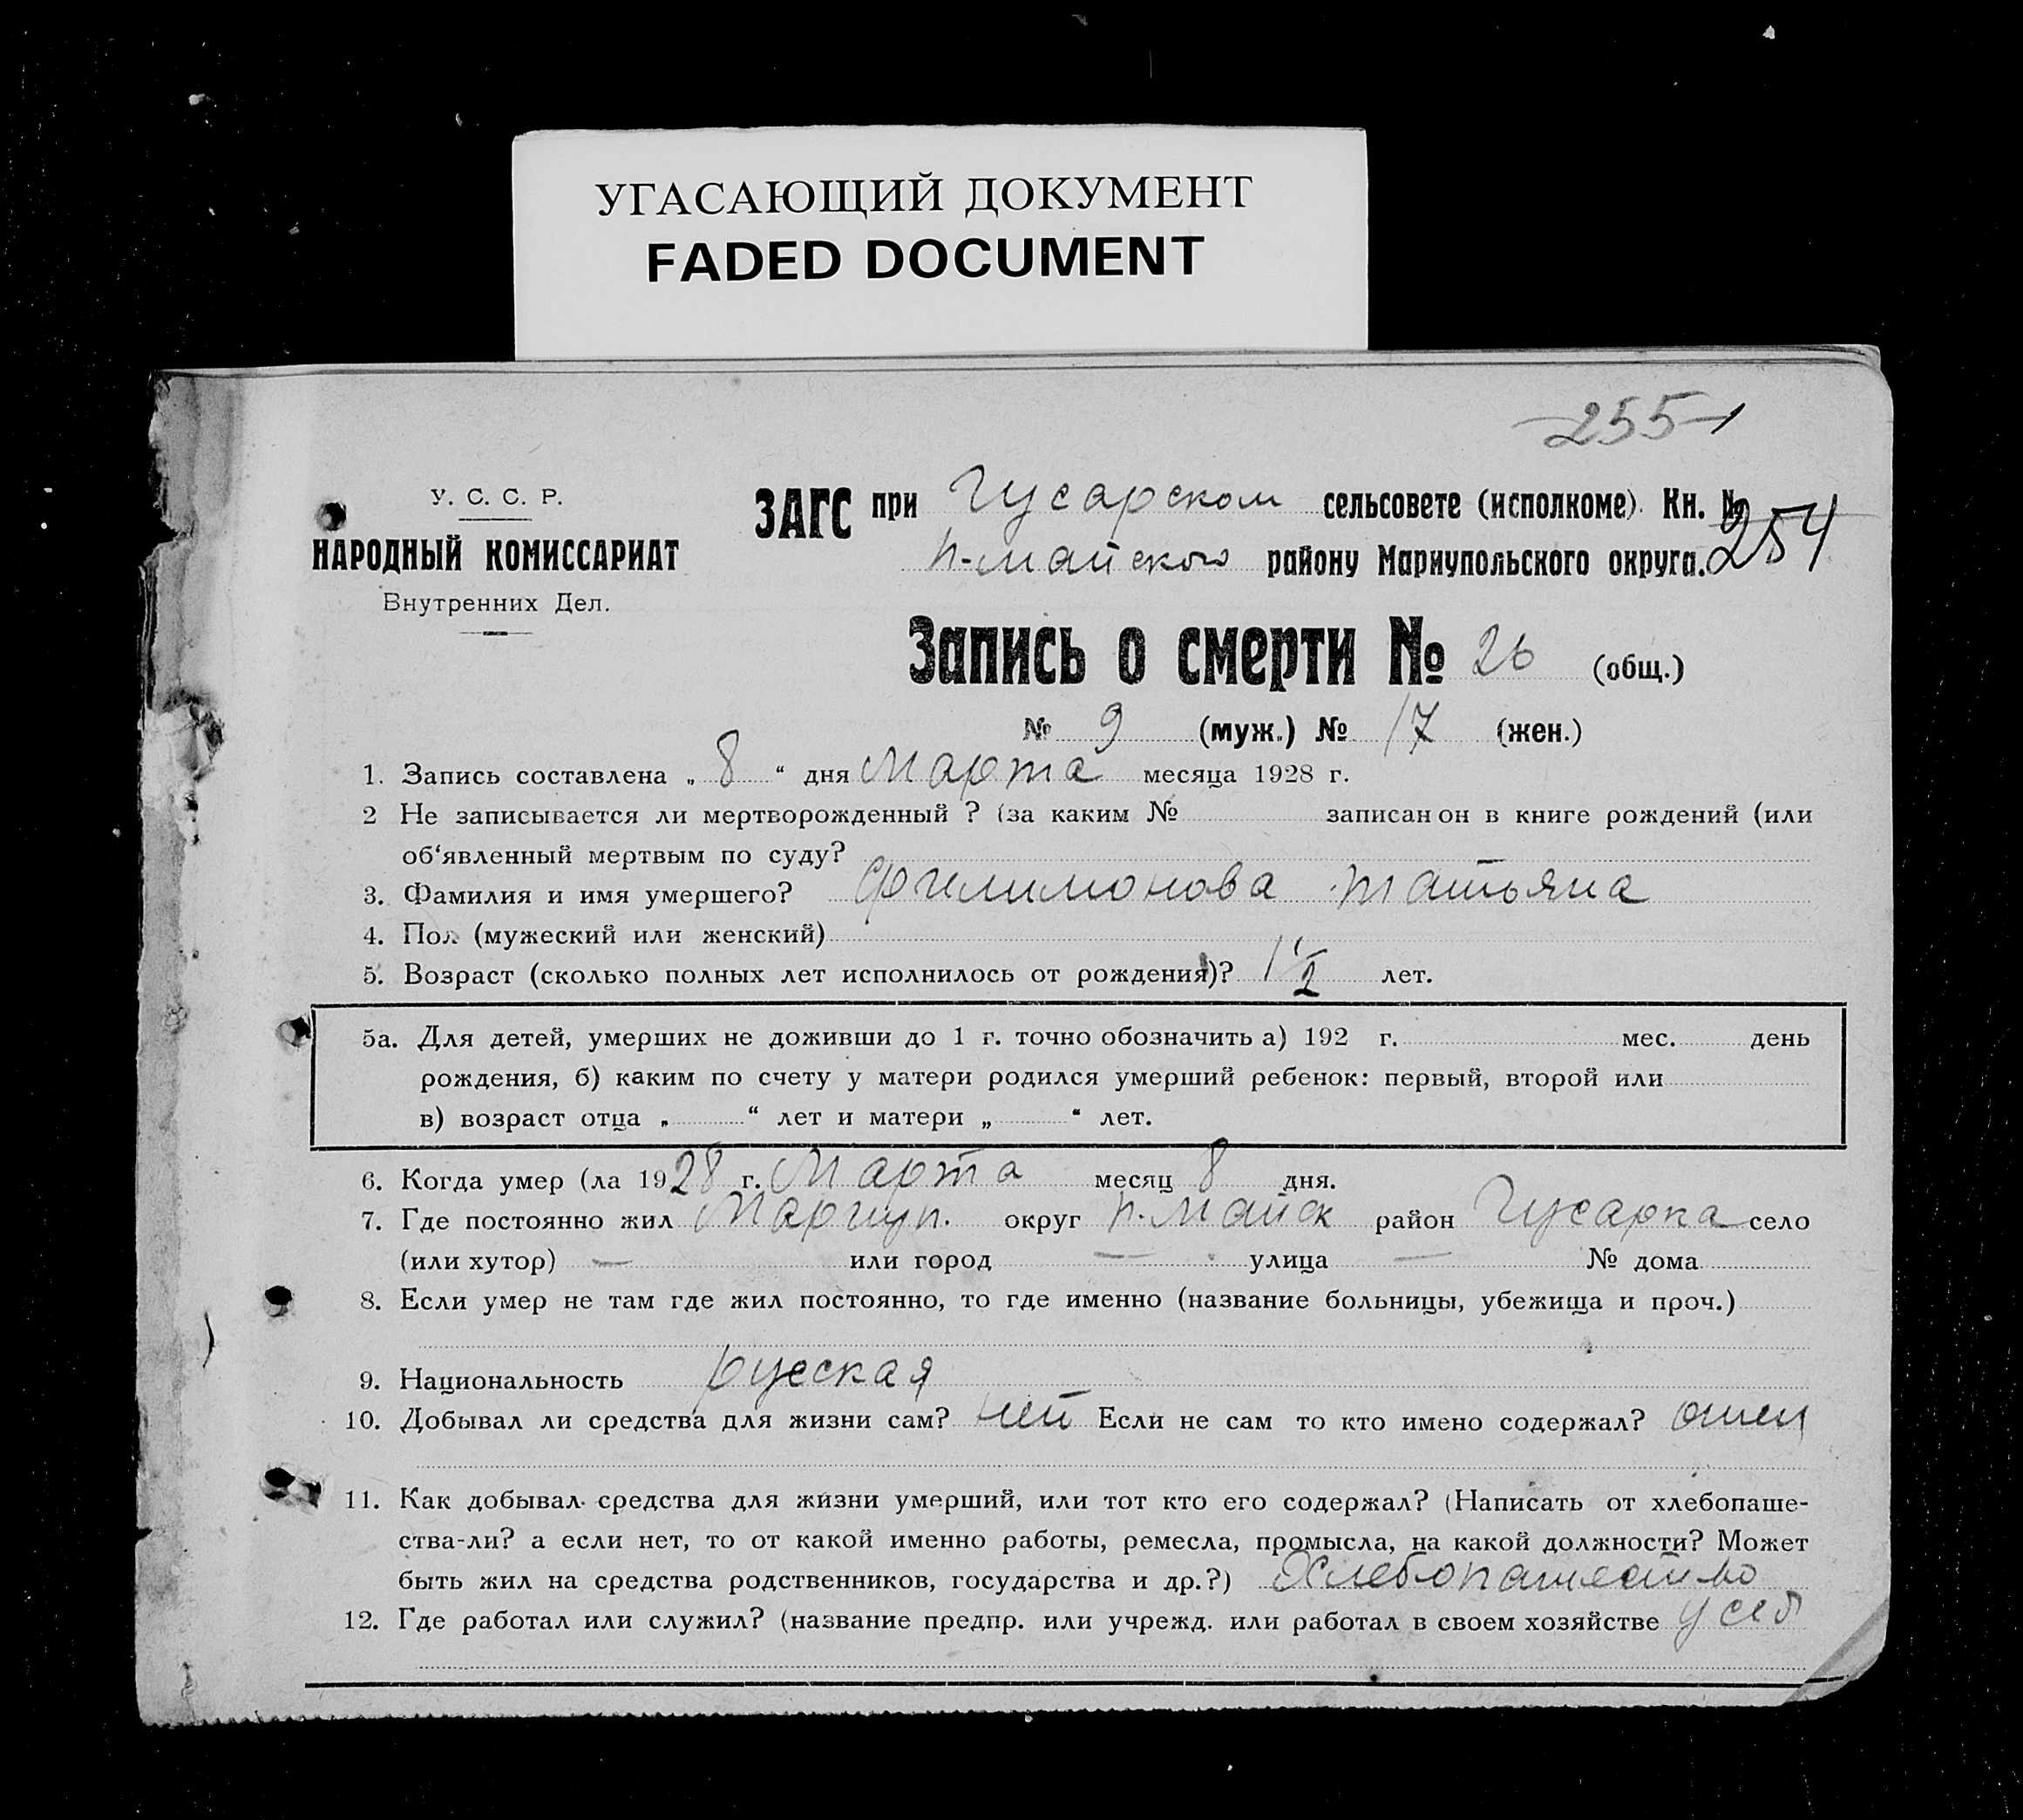 УГАСАЮЩИЙ ДОКУМЕНТ
FADED DOCUMENT
-255-
У. С. С. Р.
НАРОДНЫЙ КОМИССАРИАТ
Внутренних Дел.
ЗАГС при Гусарском сельсовете (исполкоме). Кн. №
п-майского району Мариупольского округа. 254
Запись о смерти № 26 (общ.)
№ 9 (муж.) № 17 (жен.)
1. Запись составлена „ 8 “ дня Марта месяца 1928 г.
2 Не записывается ли мертворожденный ? (за каким № записан он в книге рождений (или
об‘явленный мертвым по суду?
3. Фамилия и имя умершего? Филимонова Татьяна
4. Пол (мужеский или женский)
5. Возраст (сколько полных лет исполнилось от рождения)? 1 1/2 лет.
5а. Для детей, умерших не доживши до 1 г. точно обозначить а) 192 г. мес. день
рождения, б) каким по счету у матери родился умерший ребенок: первый, второй или
в) возраст отца „ “ лет и матери „ “ лет.
6. Когда умер (ла 1928 г. Марта месяц 8 дня.
7. Где постоянно жил Мариуп. округ п. Майск район Гусарка село
(или хутор) — или город — улица — № дома
8. Если умер не там где жил постоянно, то где именно (название больницы, убежища и проч.)
9. Национальность русская
10. Добывал ли средства для жизни сам? нет Если не сам то кто имено содержал? отец
11. Как добывал средства для жизни умерший, или тот кто его содержал? (Написать от хлебопаше-
ства-ли? а если нет, то от какой именно работы, ремесла, промысла, на какой должности? Может
быть жил на средства родственников, государства и др.?) Хлебопашество
12. Где работал или служил? (название предпр. или учрежд. или работал в своем хозяйстве у себ